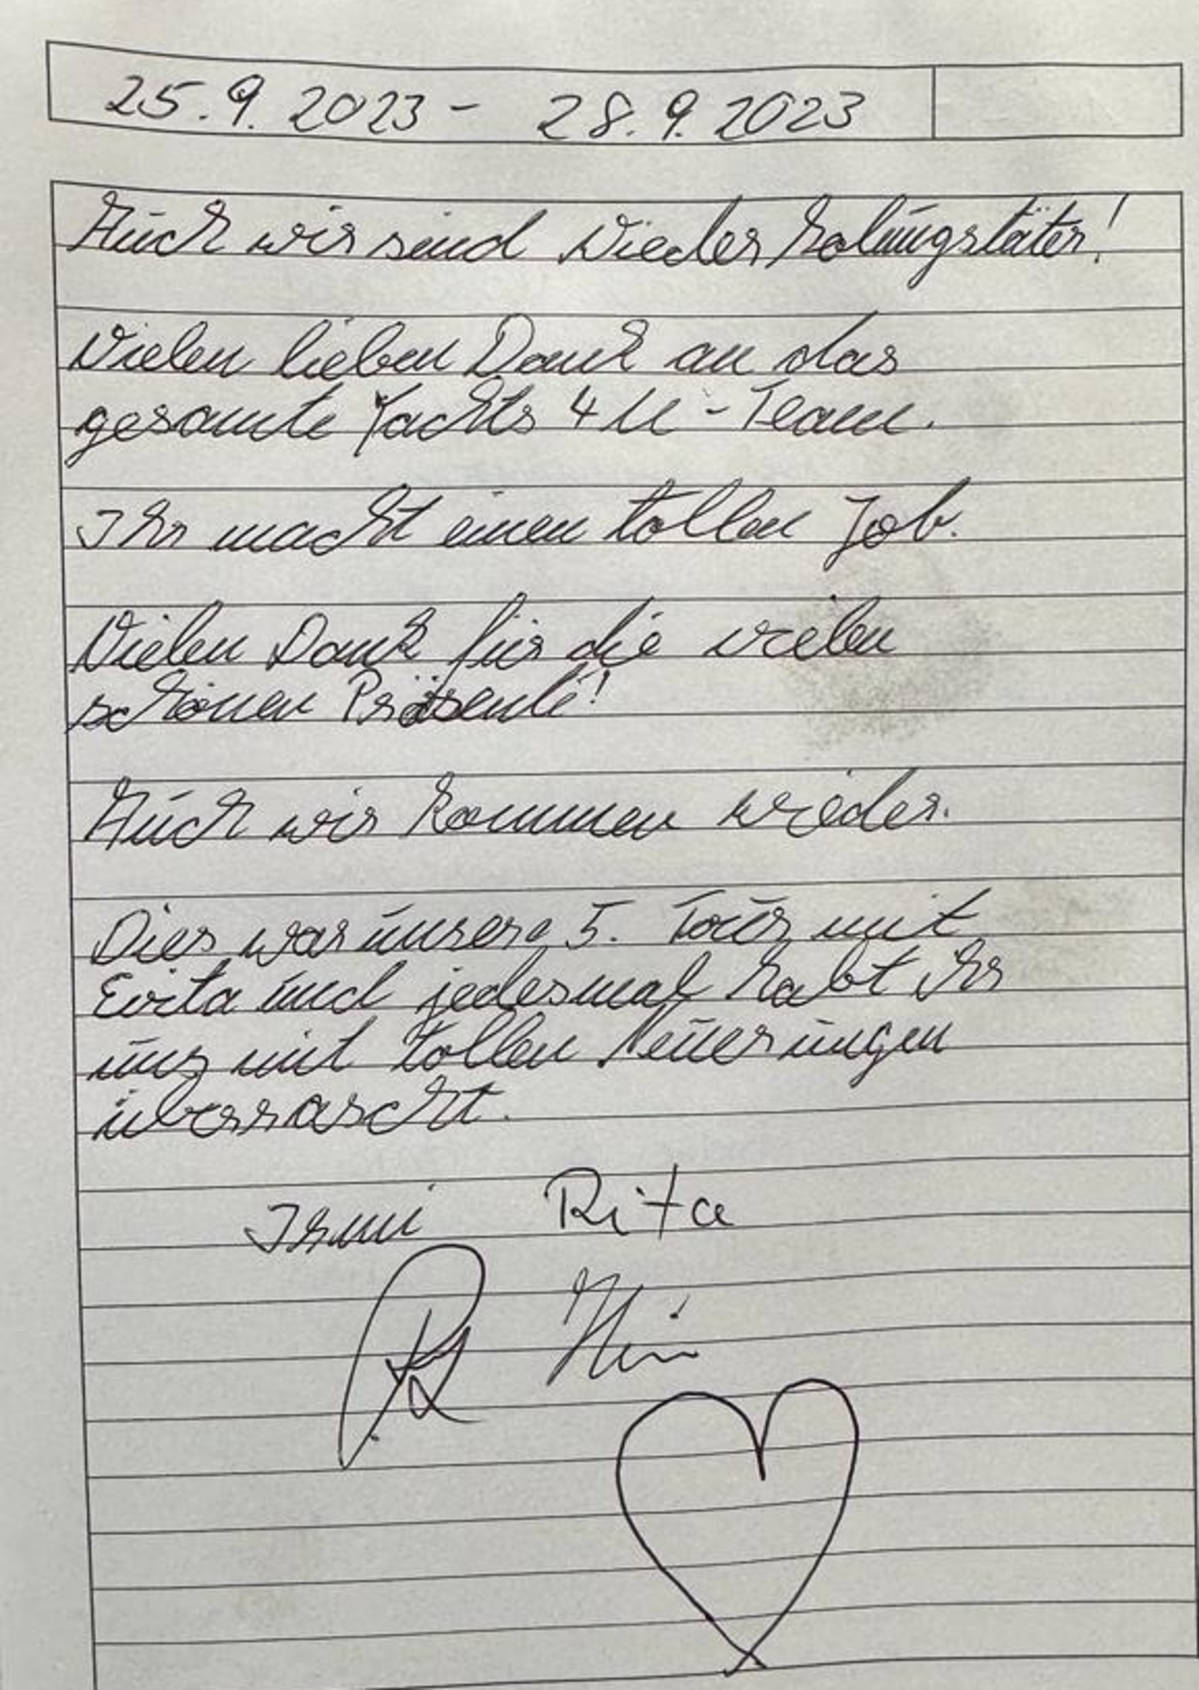 25.9.2023 - 28.9.2023
Auch wir sind Wiederholungstäter!
Vielen lieben Dank an das
gesamte Yachts 4 U - Team.
Ihr macht einen tollen Job.
Vielen Dank für die vielen
schönen Präsente!
Auch wir kommen wieder.
Dies war unsere 5. Tour mit
Evita und jedesmal habt ihr
uns mit tollen Neuerungen
überrascht.
Irmi Rita